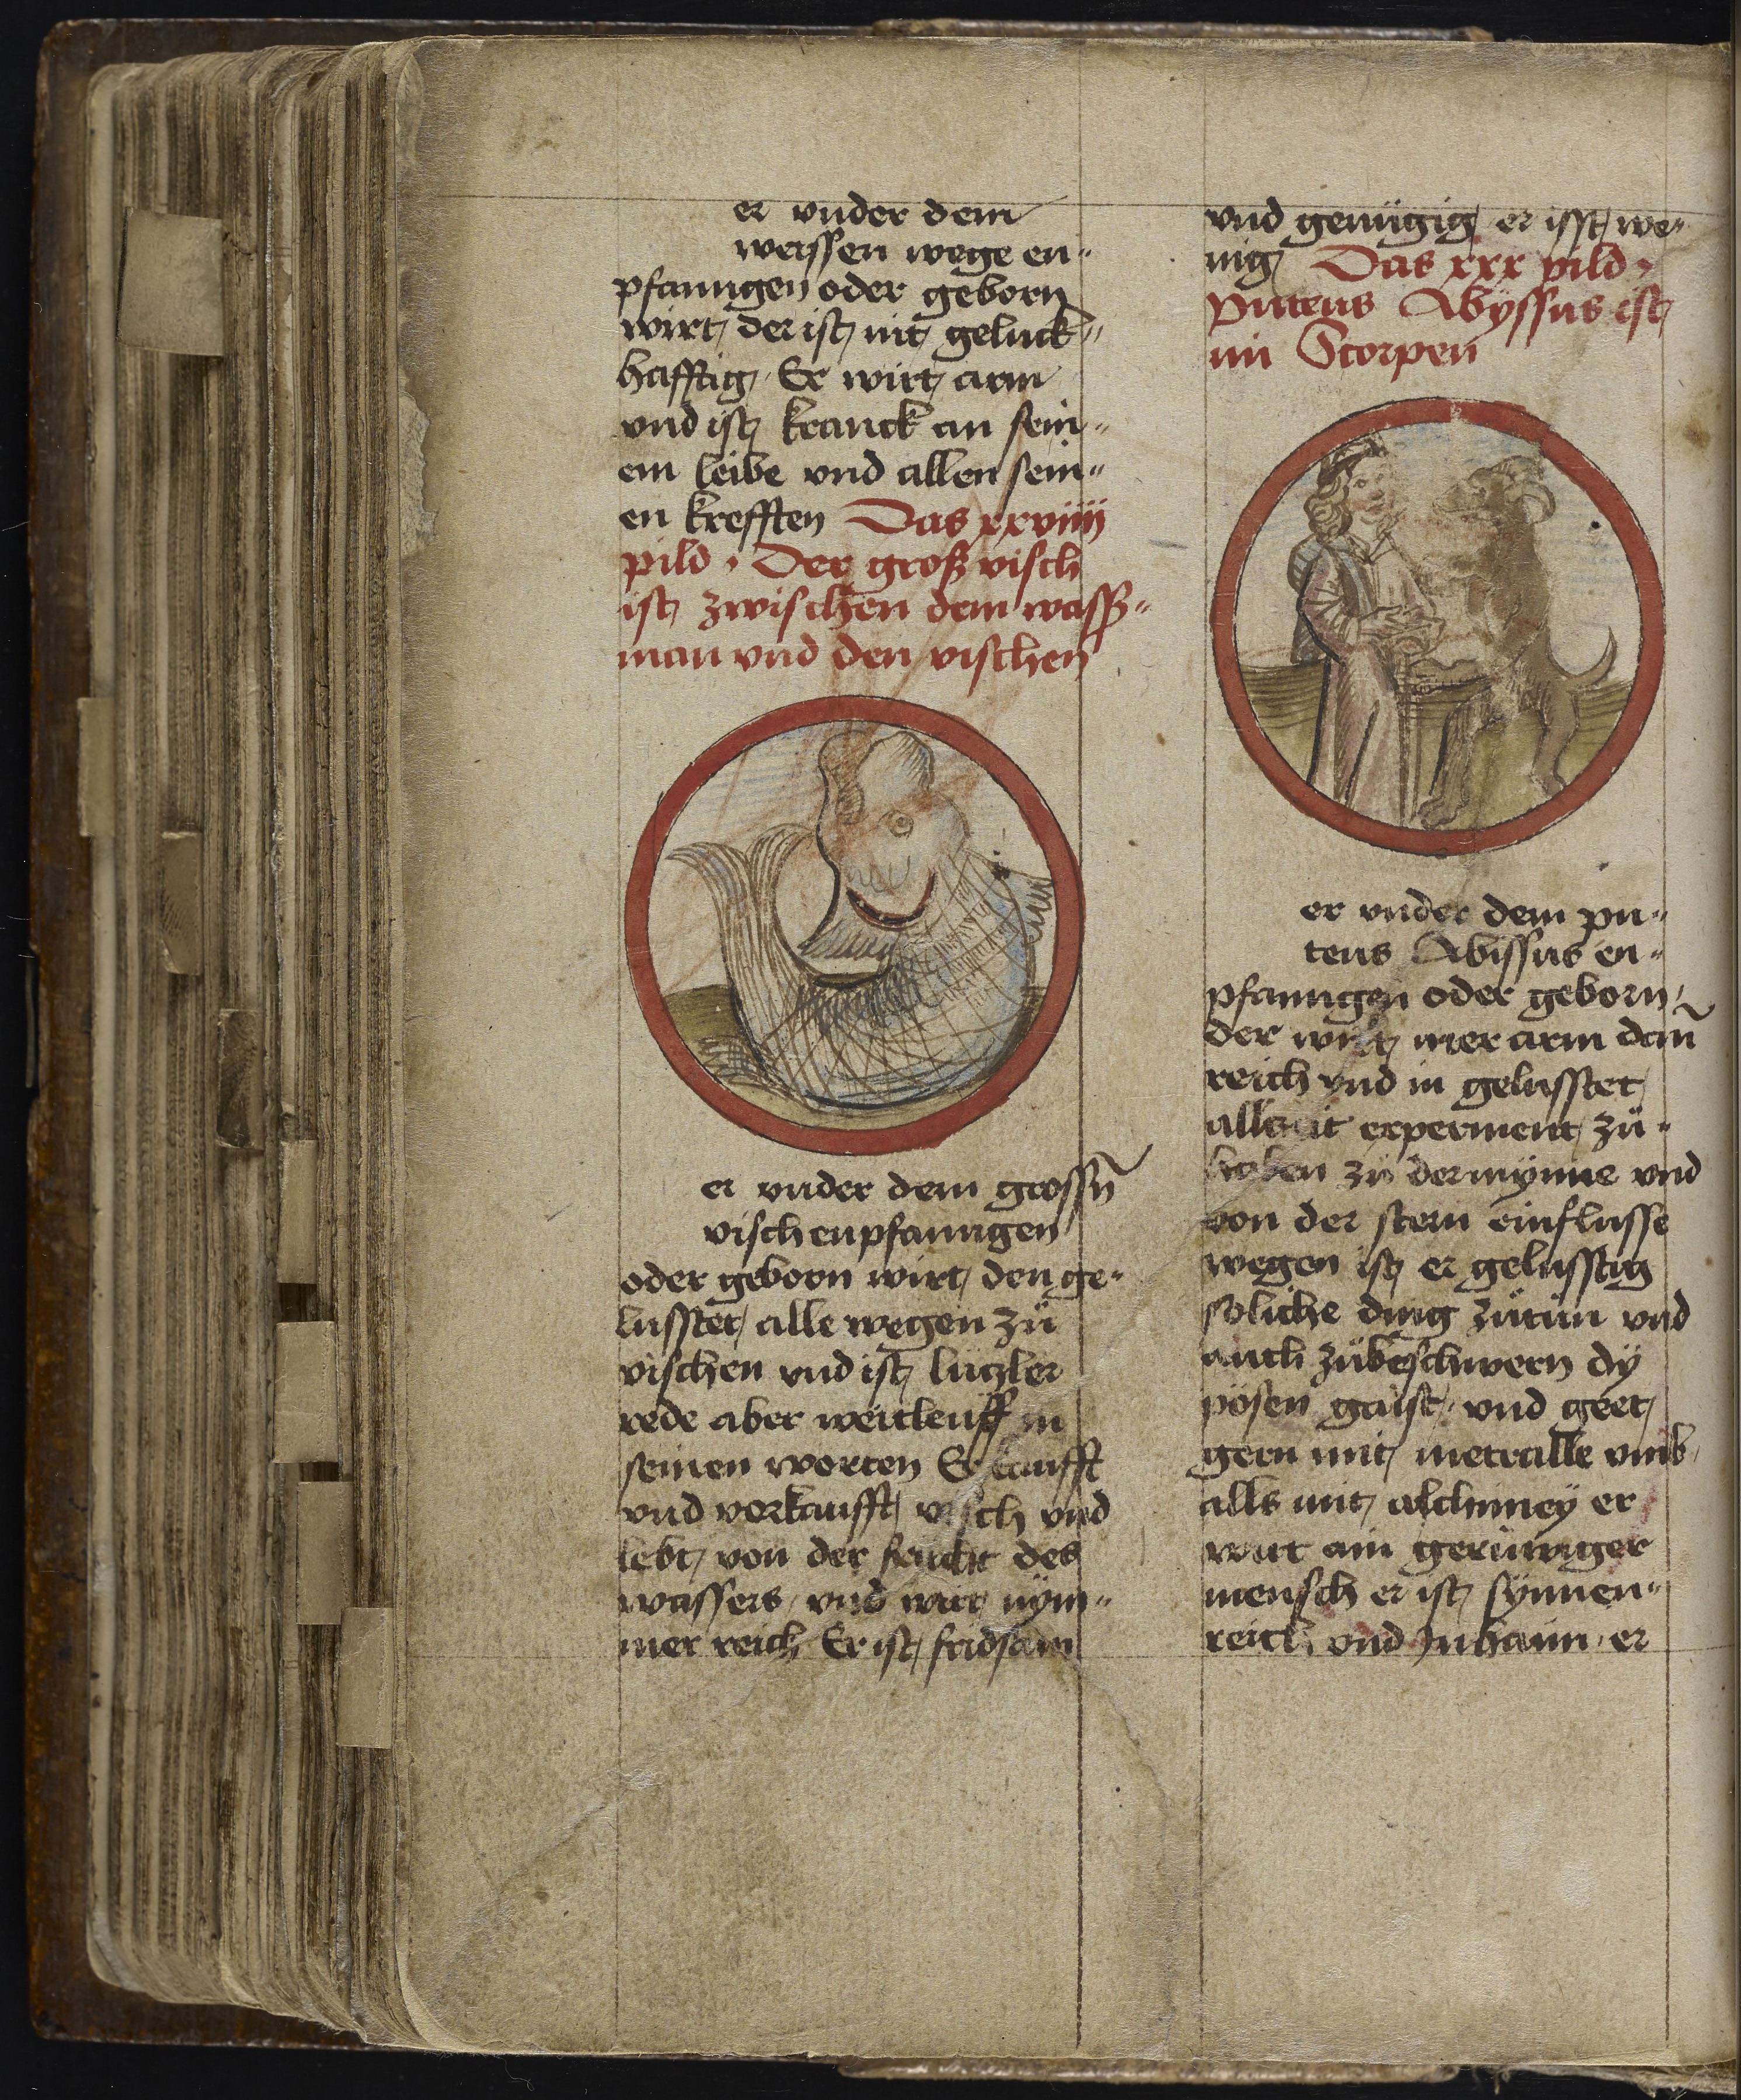 er vnder dem
weissen wege en-
pfanngen oder geborn
wirt der ist nit geluck-
hafftig Er wirt arm
vnd ist kranck an sein-
em leibe vnd allen sein-
en krefften Das xxviiij
pild · Der groß visch
ist zwischen dem wasß-
man vnd den vischen
er vnder dem grossn̄
visch enpfanngen
oder geborn wirt den ge-
lusstet alle wegen zů
vischen vnd ist lützler
rede aber weitleuff in
seinen worten Er kaufft
vnd verkaufft visch vnd
lebt von der frucht des
wassers vnd wirt nym-
mer reich Er ist fridsam
vnd genügig er isst we-
nig Das xxx pild ·
Puteus Abyssus ist
im Scorpen
er vnder dem pu-
teus Abissus en-
pfanngen oder geborn
der wirt mer arm dañ
reich vnd in gelusstet
allzeit experment zů
haben zů der mynne vnd
von der stern einflusse
wegen ist er gelusstig
soliche ding zůtůn vnd
auch zůbeschwern dÿ
pösen gaist vnd geet
gern mit metralle vmb
alls mit alchimey er
wirt ain gerüwiger
mensch er ist synnen-
reich vnd Inhaim er